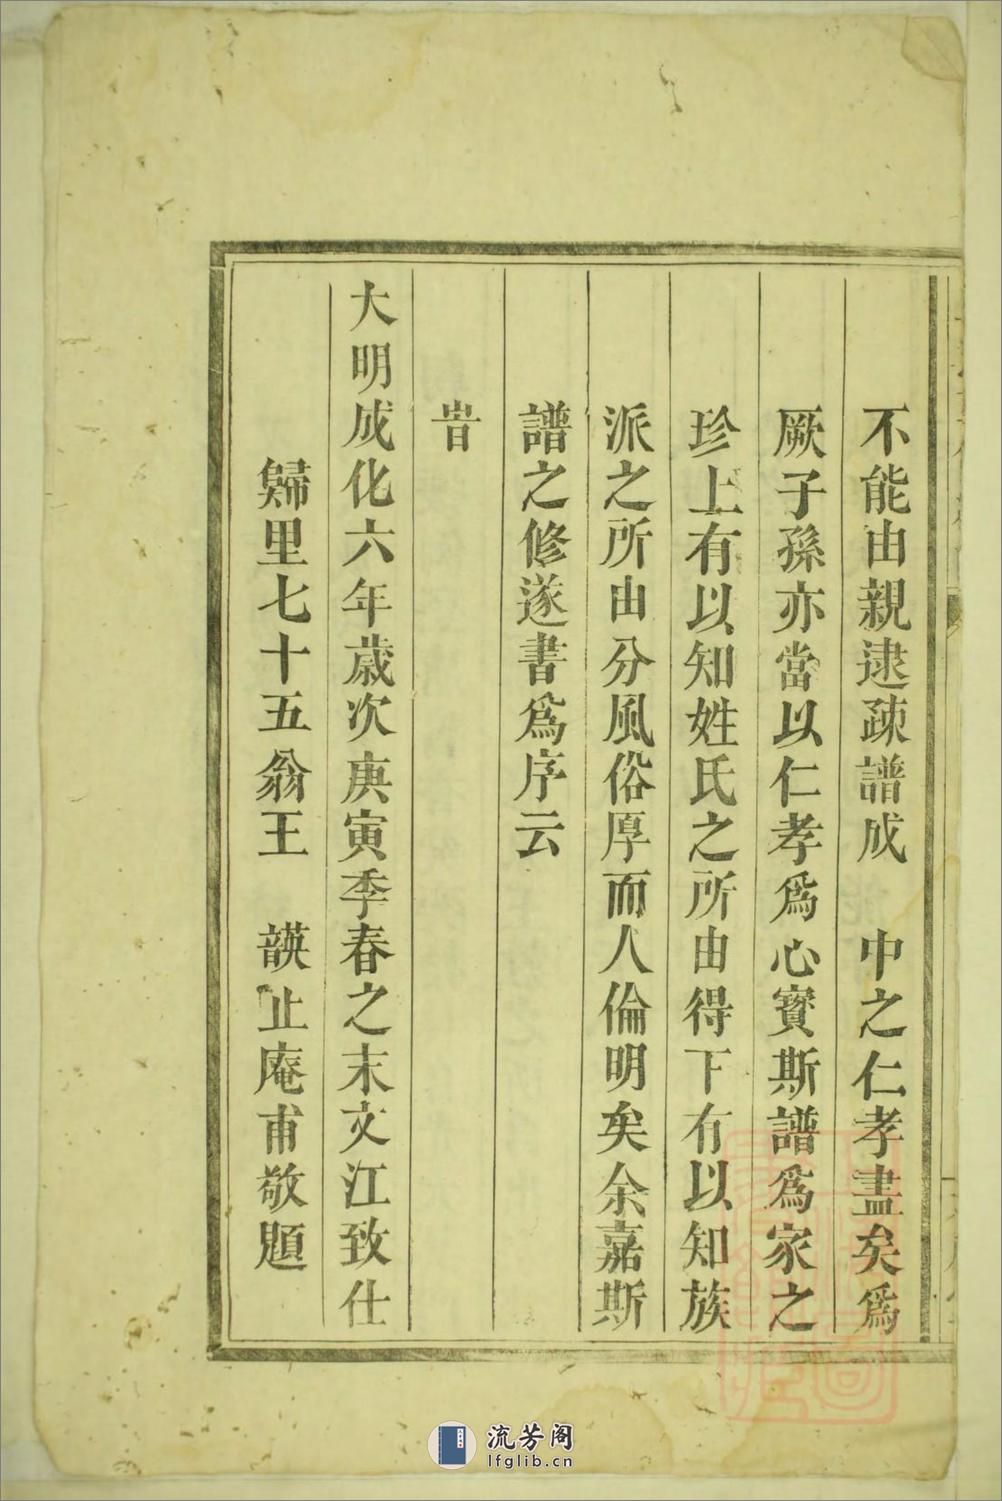 不能由親逮疎譜成　中之仁孝盡矣爲
厥子孫亦當以仁孝爲心寳斯譜爲家之
珍上有以知姓氏之所由得下有以知族
派之所由分風俗厚而人倫明矣余嘉斯
譜之修遂書爲序云
旹
大明成化六年歲次庚寅季春之末文江致仕
歸里七十五翁王　韺止庵甫敬題
流芳阁
lfglib.cn